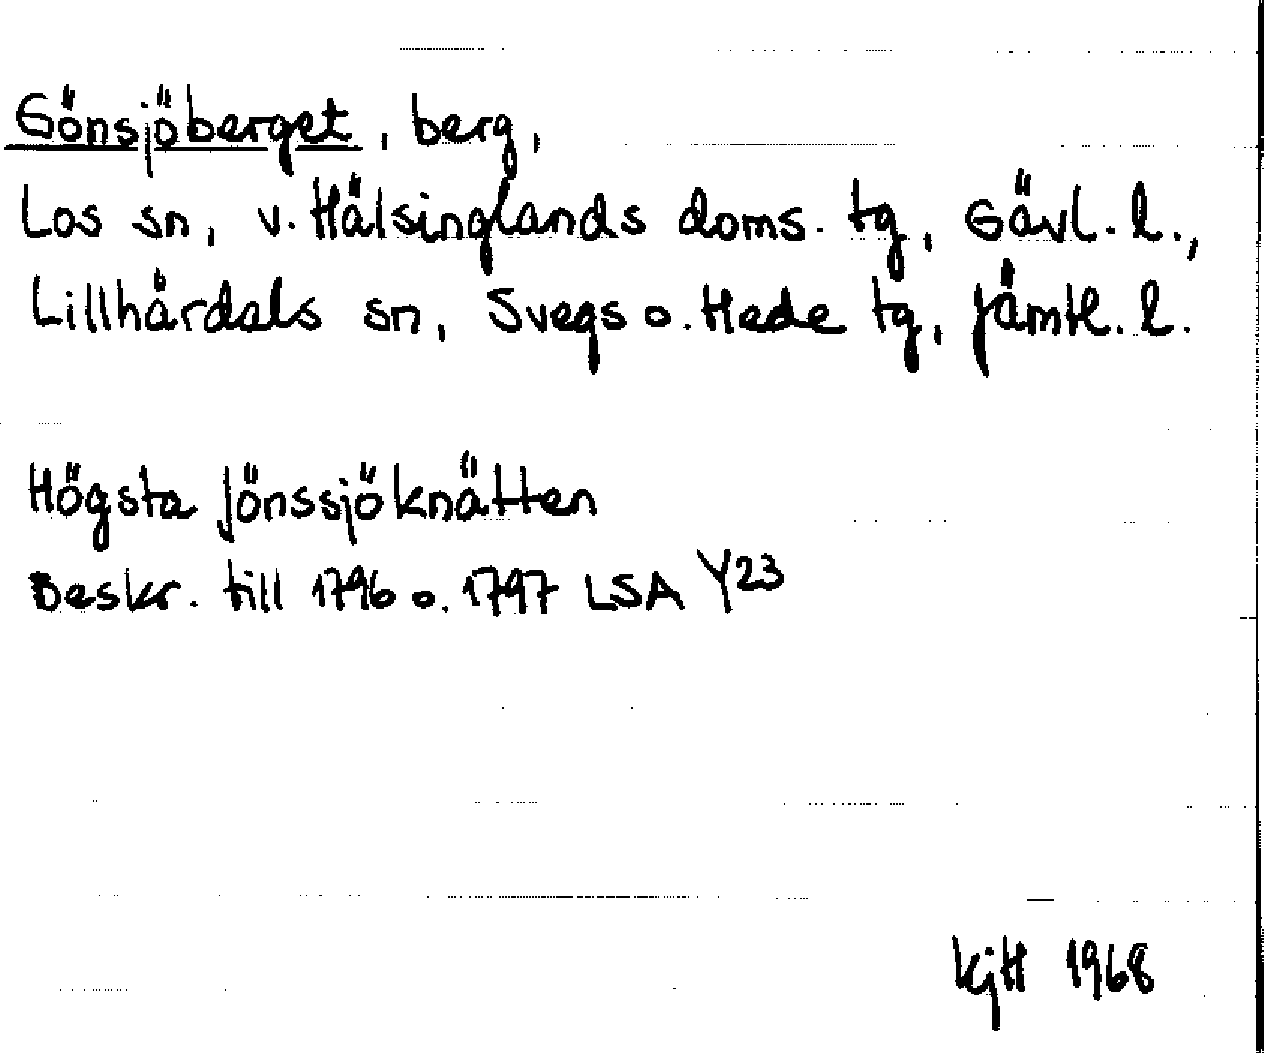 Gönsjöberget, berg,
Los sn, v. Hälsinglands doms. tg, Gävl. l.,
Lillhärdals sn, Svegs o. Hede tg, Jämtl. l.
Högsta Jönssjöknätten
Beskr. till 1796 o. 1797 LSA Y23
KjH 1968